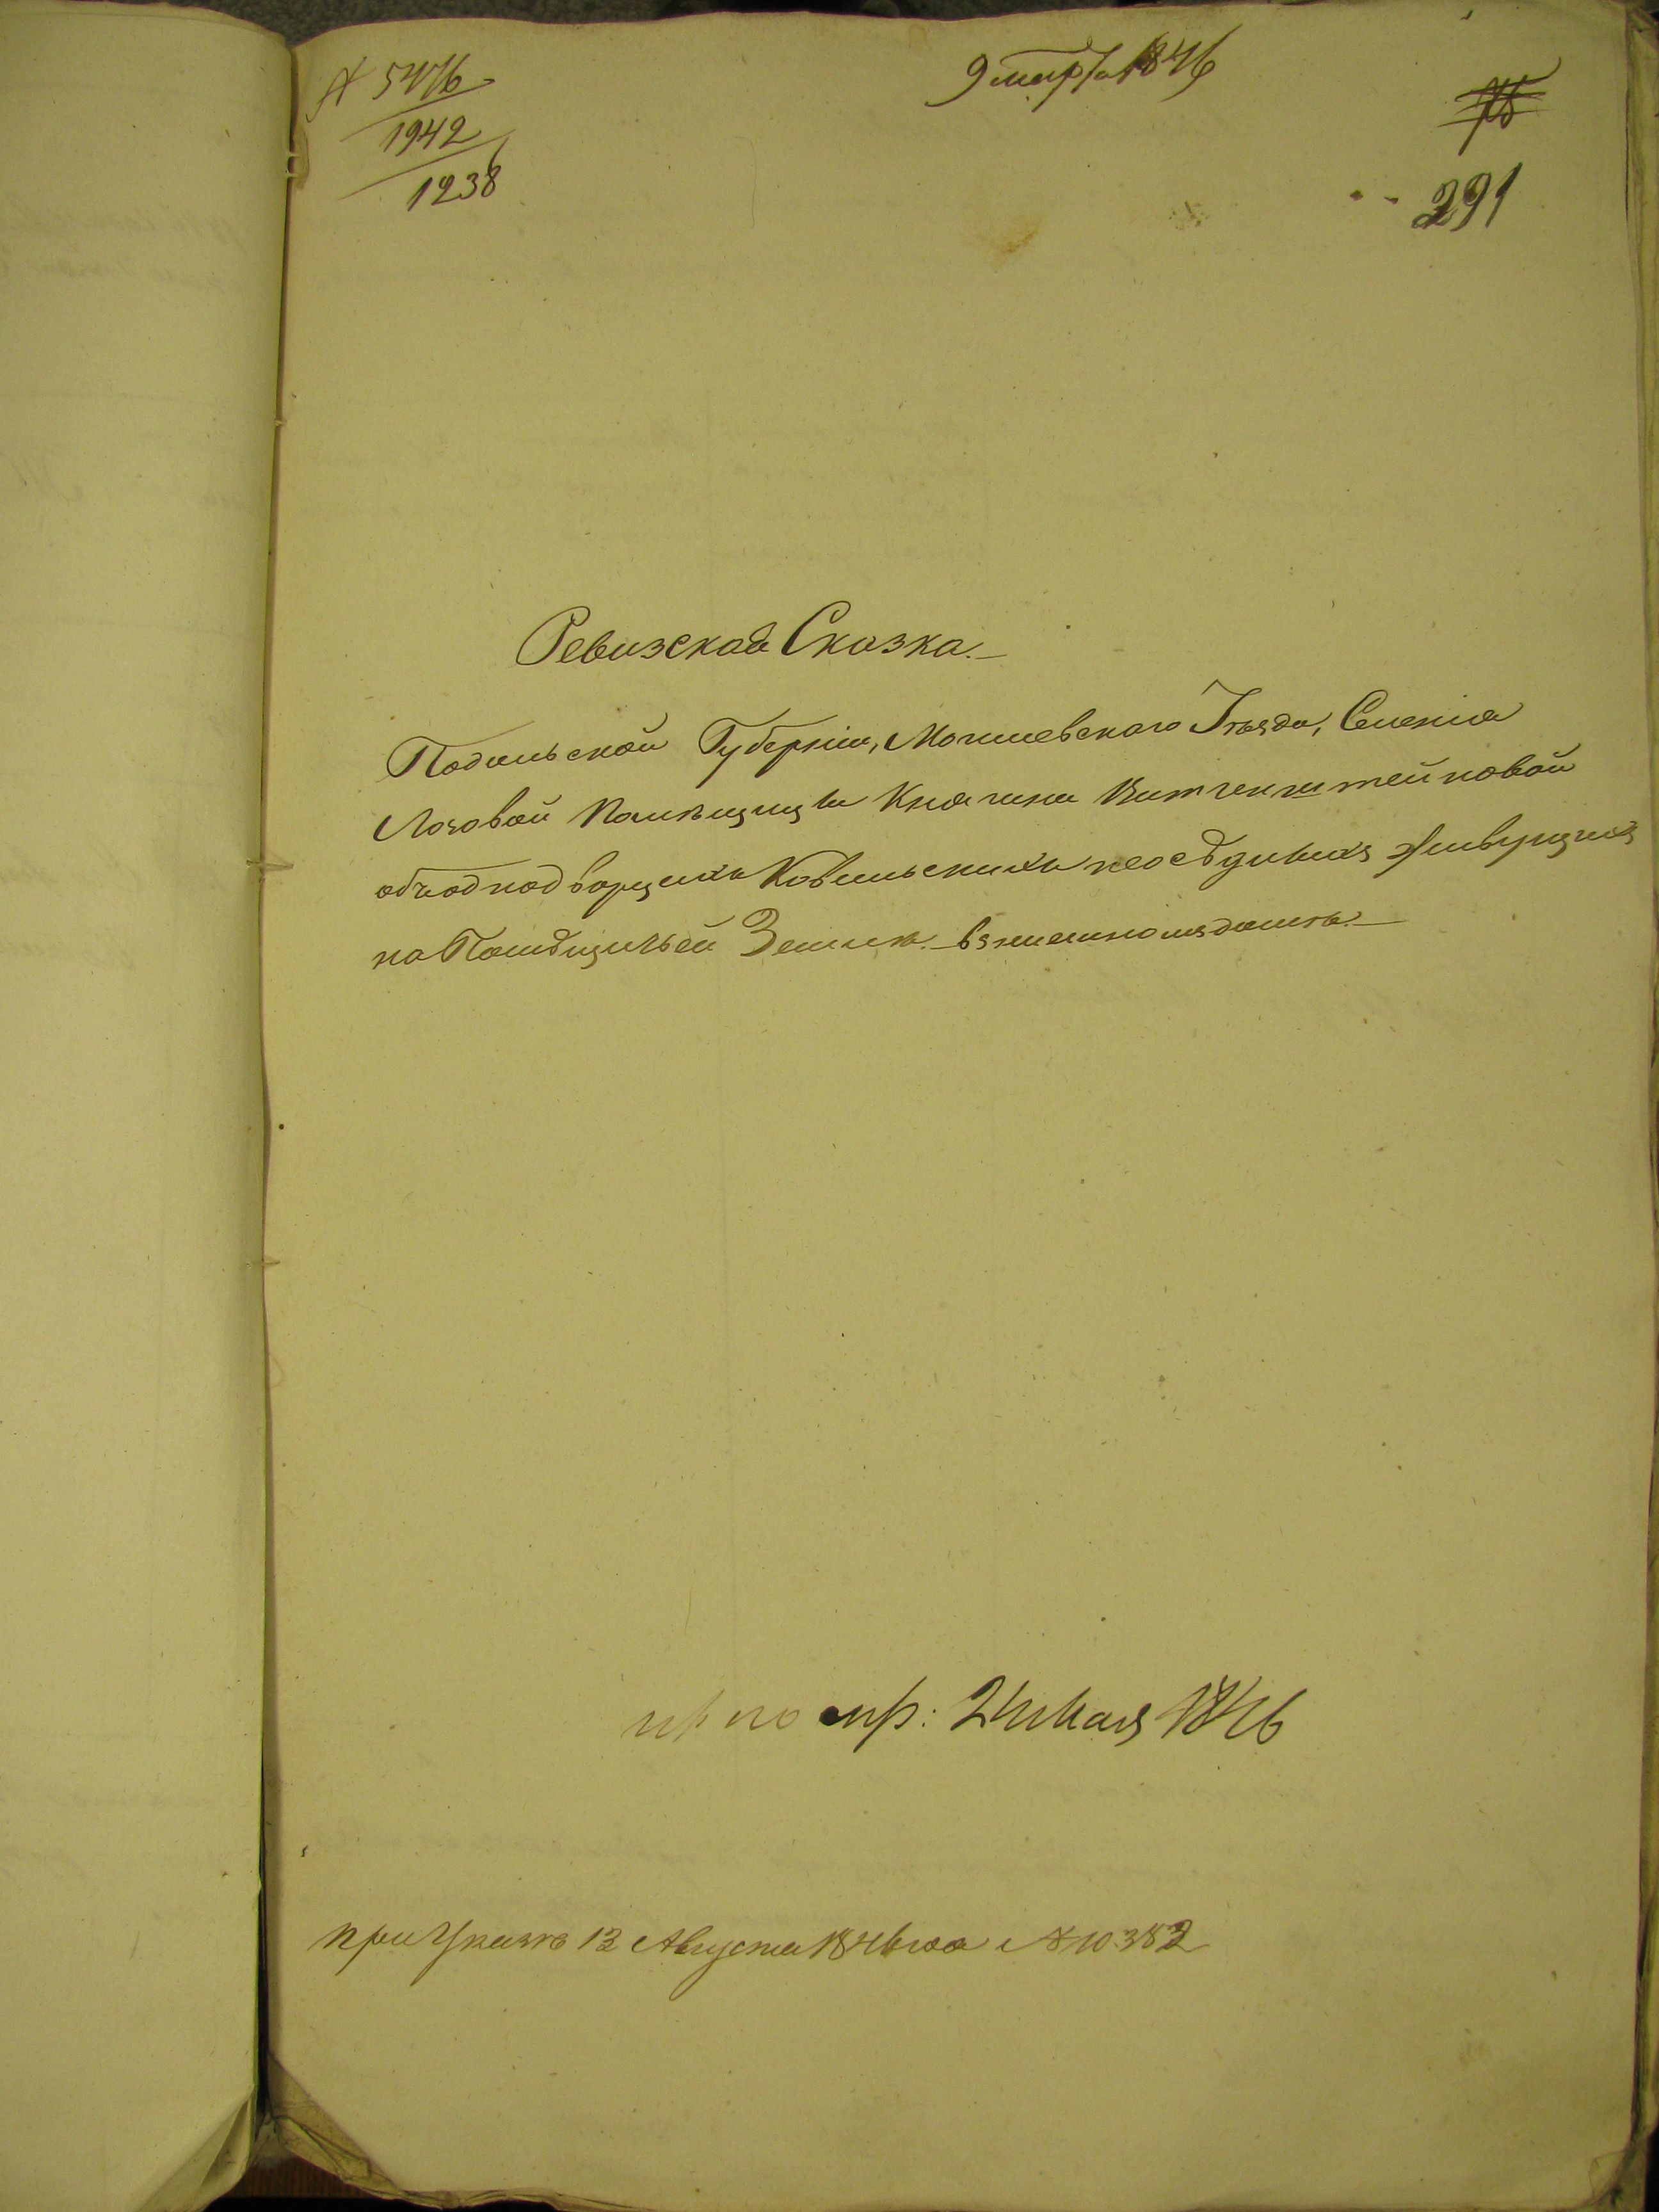 № 5476
1942
1238
9 марта 1846
291
Ревизская Сказка.—
Подольской Губерніи, Могилевского Уѣзда, Селенія
Лозовой Помѣщицы Княгини Витгенштейновой
объ однодворцахъ Ковальскихъ неосѣдлыхъ живущихъ
на Помѣщичьей Землѣ.—
мр: 24 Мая 1846
при Указѣ 13 Августа 1846 года № 10.382